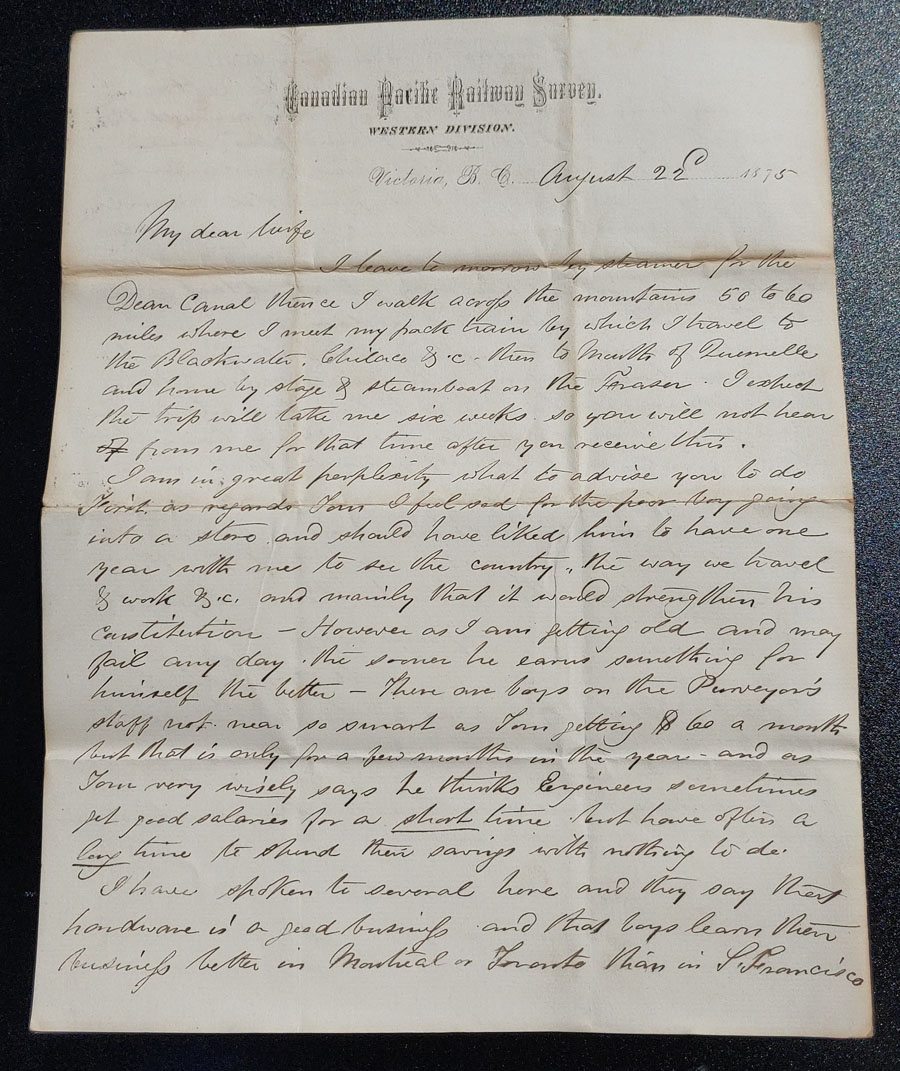 Canadian Pacific Railway Survey.
WESTERN DIVISION.
Victoria, B. C. August 22d 1875
My dear Wife
I leave to morrow by steamer for the
Dean Canal thence I walk across the mountains 50 to 60
miles where I meet my pack train by which I travel to
the Blackwater, Chilaco &c - then to Mouth of Quesnelle
and home by stage & steamboat on the Fraser. I expect
the trip will take me six weeks. so you will not hear
from me for that time after you receive this.
I am in great perplexity what to advise you to do
First, as regards Tom I feel sad for the poor boy going
into a store and should have liked him to have one
year with me to see the country, the way we travel
& work &.c. and mainly that it would strengthen his
constitution - However as I am getting old and may
fail any day. the sooner he earns something for
himself the better - There are boys on the Purveyor's
staff not near so smart as Tom getting $60 a month
but that is only for a few months in the year - and as
Tom very wisely says he thinks Engineers sometimes
get good salaries for a short time but have often a
long time to spend their savings with nothing to do.
I have spoken to several here and they say that
hardware is a good business and that boys learn their
business better in Montreal or Toronto than in S. Francisco